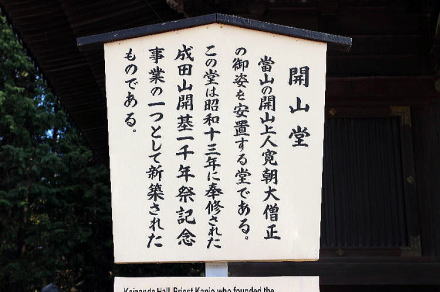 開山堂
當山の開山上人寛朝大僧正
の御姿を安置する堂である。
この堂は昭和十三年に奉修された
成田山開基一千年祭記念
事業の一つとして新築された
ものである。
Kaisando Hall Priest Kanjo who founded the